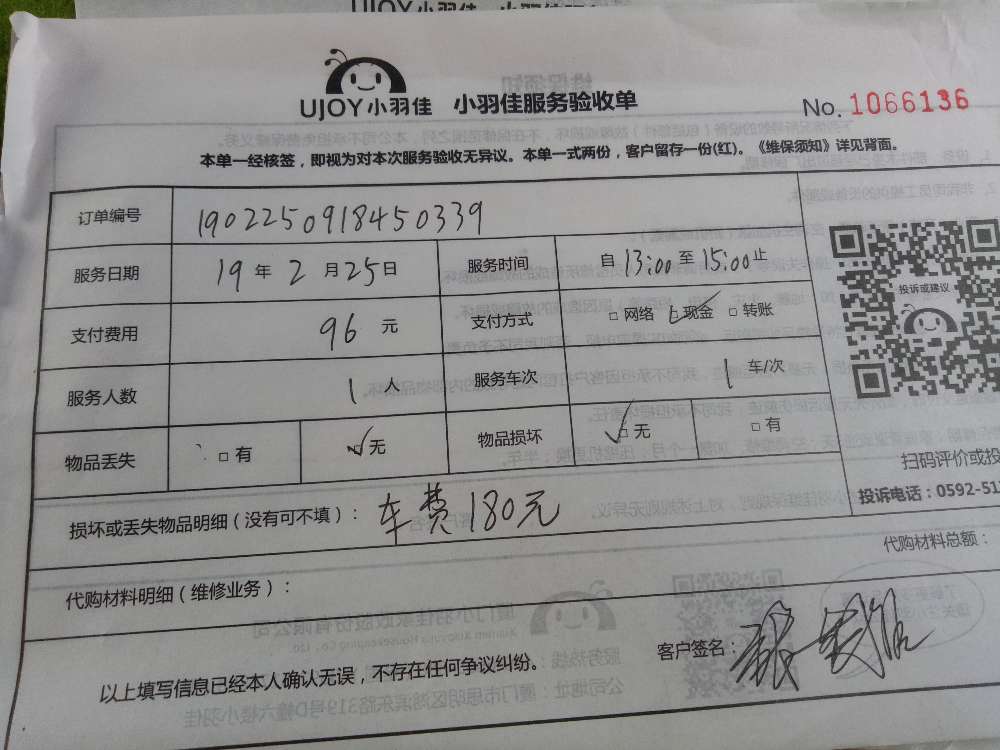 UJOY小羽佳 小羽佳服务验收单
No. 1066136
本单一经核签，即视为对本次服务验收无异议。本单一式两份，客户留存一份(红)。《维保须知》详见背面。
订单编号 1902250918450339
服务日期 19年2月25日 服务时间 自13:00至15:00止
支付费用 96元 支付方式 □网络 ☑现金 □转账
投诉或建议
服务人数 1人 服务车次 1车/次
物品丢失 □有 ☑无 物品损坏 ☑无 □有
扫码评价或投
投诉电话：0592-51
损坏或丢失物品明细（没有可不填）： 车费180元
代购材料总额：
代购材料明细（维修业务）：
客户签名：
以上填写信息已经本人确认无误，不存在任何争议纠纷。